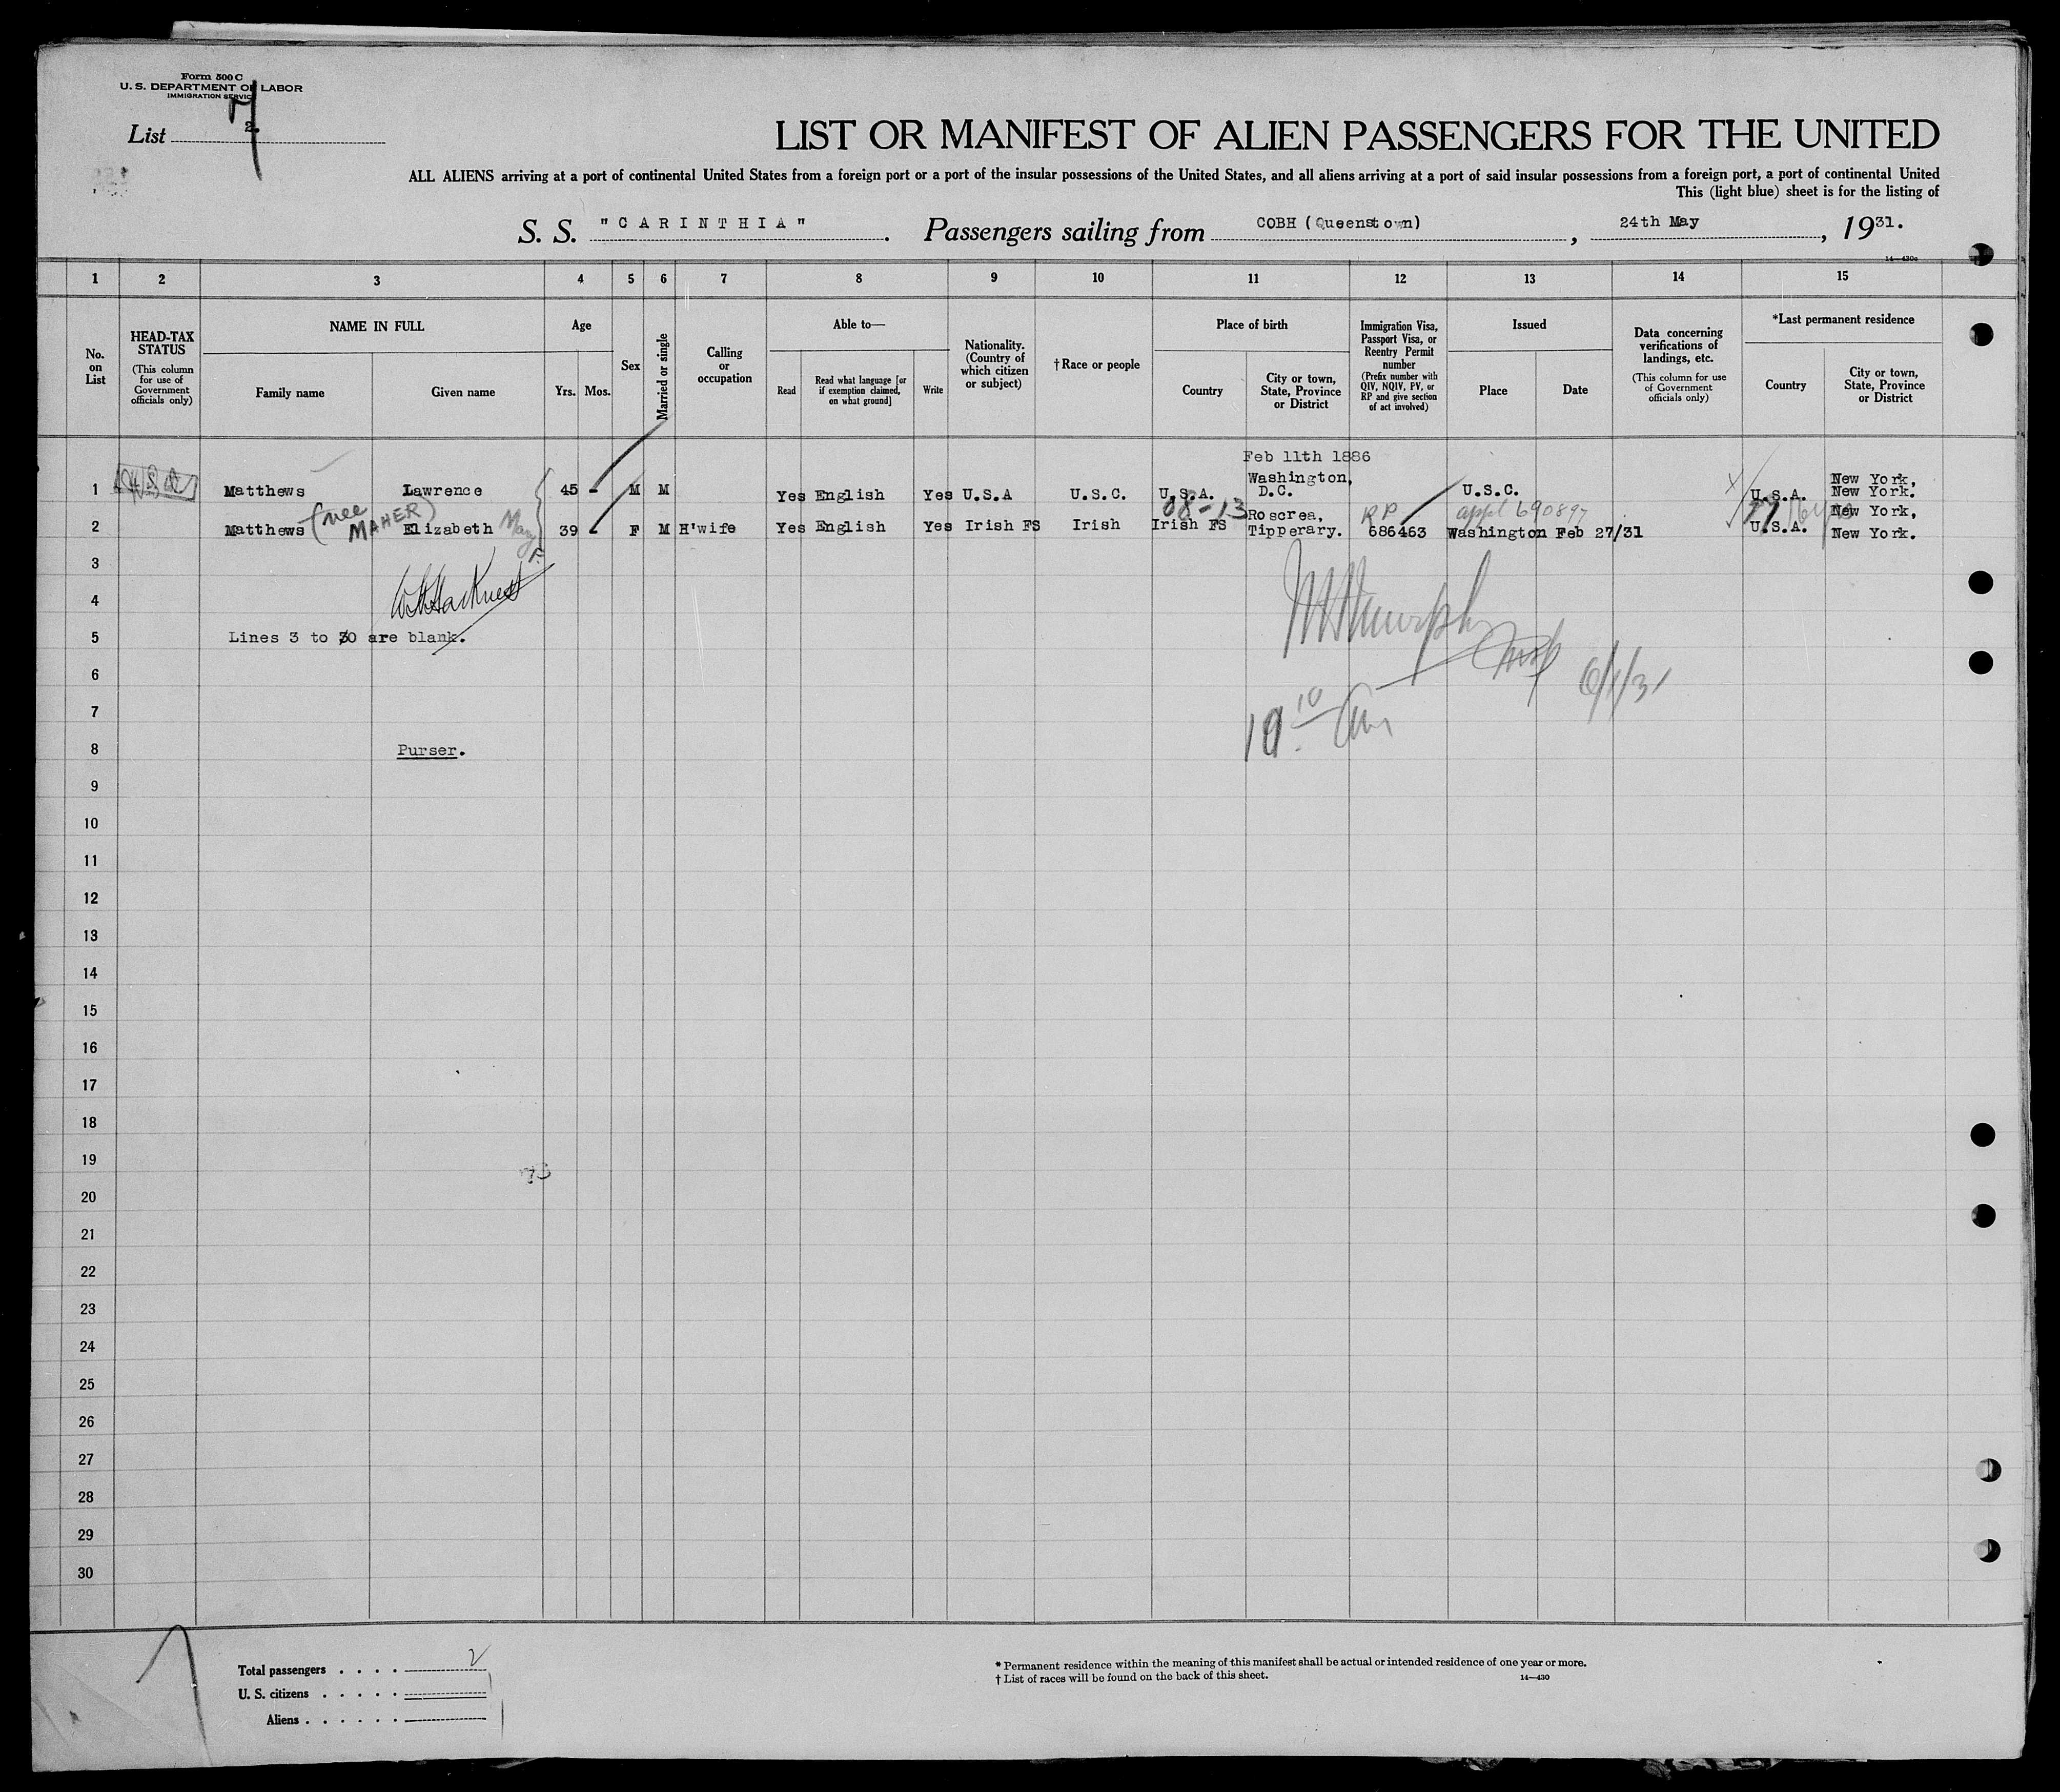 Form 500 C
U. S. DEPARTMENT OF LABOR
IMMIGRATION SERVICE
List 2 7
LIST OR MANIFEST OF ALIEN PASSENGERS FOR THE UNITED
ALL ALIENS arriving at a port of continental United States from a foreign port or a port of the insular possessions of the United States, and all aliens arriving at a port of said insular possessions from a foreign port, a port of continental United
This (light blue) sheet is for the listing of
S. S. "CARINTHIA". Passengers sailing from COBH (Queenstown), 24th May, 1931.
14—430c
1 2 3 4 5 6 7 8 9 10 11 12 13 14 15
No. on List
HEAD-TAX STATUS
(This column for use of Government officials only)
NAME IN FULL
Family name Given name
Age
Yrs. Mos.
Sex
Married or single
Calling or occupation
Able to—
Read
Read what language [or if exemption claimed, on what ground]
Write
Nationality. (Country of which citizen or subject)
† Race or people
Place of birth
Country
City or town, State, Province or District
Immigration Visa, Passport Visa, or Reentry Permit number
(Prefix number with QIV, NQIV, PV, or RP and give section of act involved)
Issued
Place Date
Data concerning verifications of landings, etc.
(This column for use of Government officials only)
*Last permanent residence
Country
City or town, State, Province or District
Feb 11th 1886
1 Matthews Lawrence 45 - M M Yes English Yes U.S.A U.S.C. U.S.A. Washington, D.C. U.S.C. U.S.A. New York, New York.
2 Matthews (nee MAHER) Elizabeth Mary 39 - F M H'wife Yes English Yes Irish FS Irish Irish FS 08-13 Roscrea, Tipperary. RP 686463 appl 690897 Washington Feb 27/31 U.S.A. New York, New York.
3
4
5 Lines 3 to 30 are blank.
6 6/1/31
7 10 10 am
8 Purser.
9
10
11
12
13
14
15
16
17
18
19
20
21
22
23
24
25
26
27
28
29
30
Total passengers . . . . 2
U. S. citizens . . . . .
Aliens . . . . . .
* Permanent residence within the meaning of this manifest shall be actual or intended residence of one year or more.
† List of races will be found on the back of this sheet.
14—430